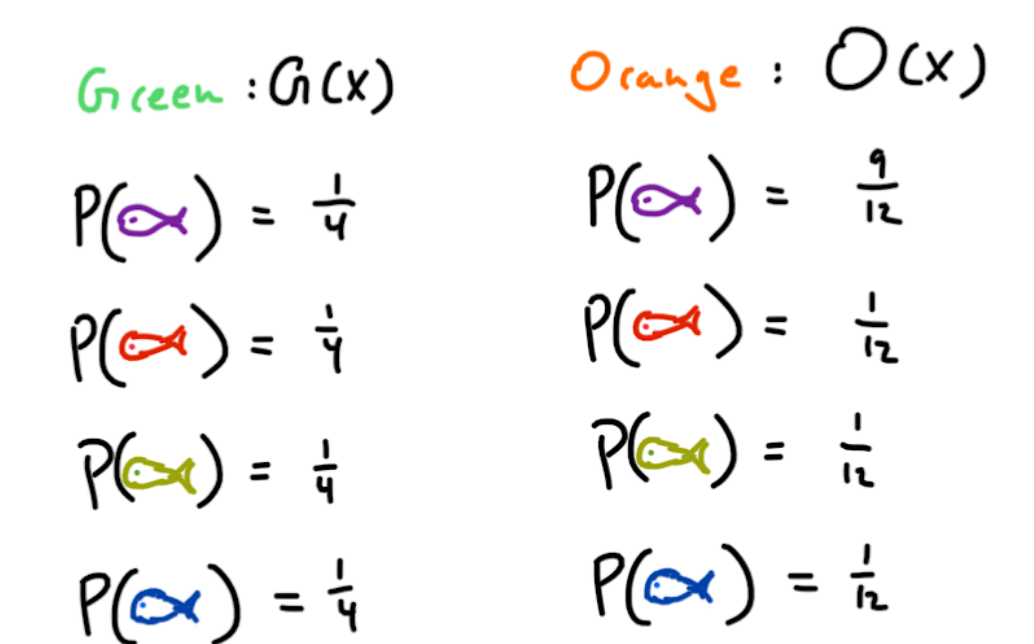 Green : G(x)
P( ) = 1/4
P( ) = 1/4
P( ) = 1/4
P( ) = 1/4
Orange : O(x)
P( ) = 9/12
P( ) = 1/12
P( ) = 1/12
P( ) = 1/12